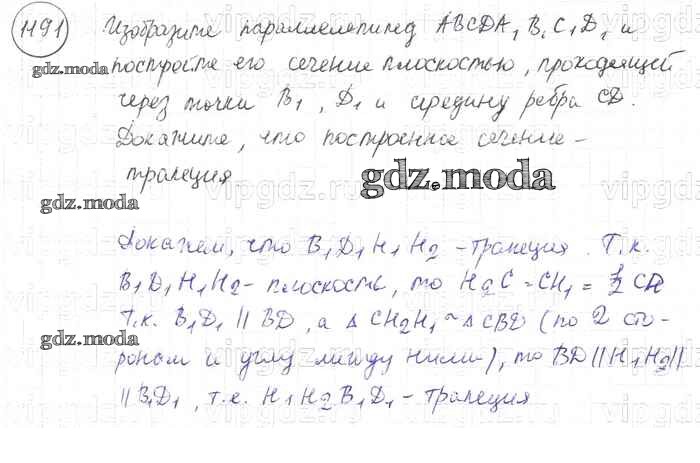 1191 Изобразите параллелепипед ABCDA₁B₁C₁D₁ и
gdz.moda постройте его сечение плоскостью, проходящей
через точки B₁, D₁ и середину ребра CD.
Докажите, что построенное сечение -
трапеция
gdz.moda
gdz.moda
Докажем, что B₁D₁H₁H₂ - трапеция. Т.к.
B₁D₁H₁H₂ - плоскость, то H₂C = CH₁ = 1/2 CD
gdz.moda Т.к. B₁D₁ || BD, а △CH₂H₁ ~ △CBD (по 2 сто-
ронам и углу между ними), то BD || H₁H₂ ||
gdz.moda || B₁D₁, т.е. H₁H₂B₁D₁ - трапеция